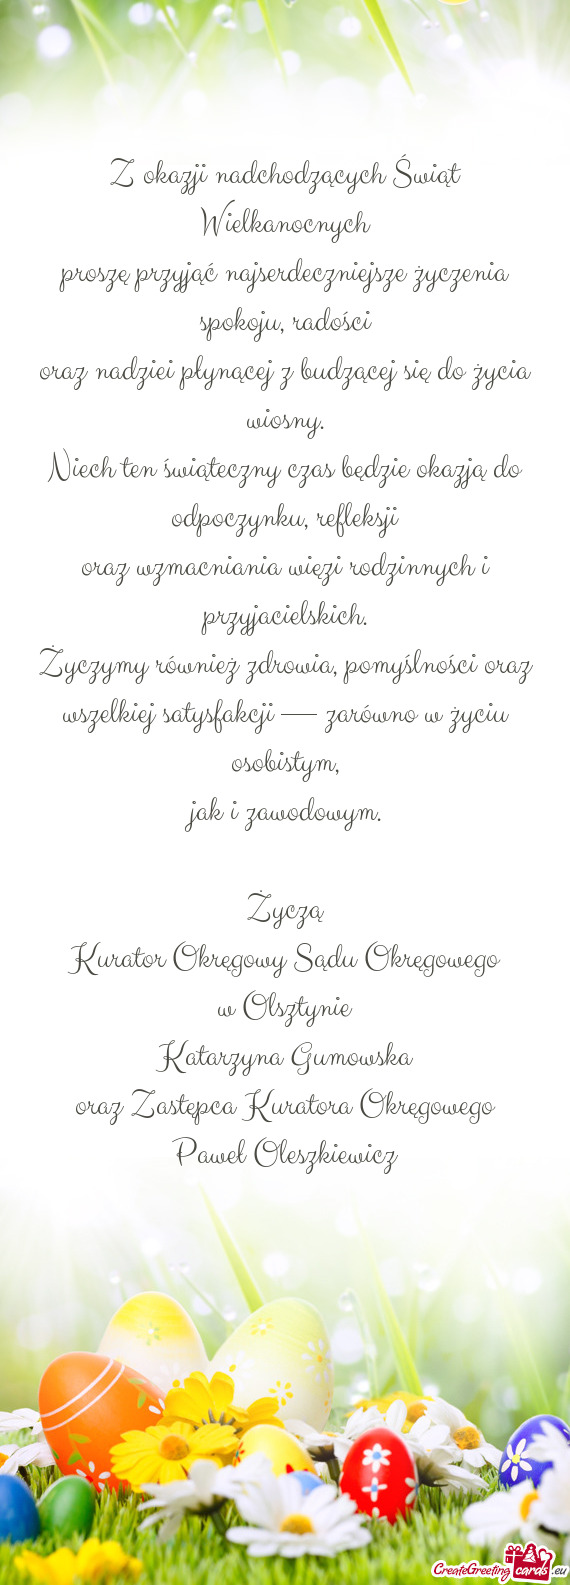 Z okazji nadchodzących Świąt
Wielkanocnych
proszę przyjąć najserdeczniejsze życzenia
spokoju, radości
oraz nadziei płynącej z budzącej się do życia
wiosny.
Niech ten świąteczny czas będzie okazją do
odpoczynku, refleksji
oraz wzmacniania więzi rodzinnych i
przyjacielskich.
Życzymy również zdrowia, pomyślności oraz
wszelkiej satysfakcji — zarówno w życiu
osobistym,
jak i zawodowym.
Życzą
Kurator Okręgowy Sądu Okręgowego
w Olsztynie
Katarzyna Gumowska
oraz Zastępca Kuratora Okręgowego
Paweł Oleszkiewicz
CreateGreetingcards.eu